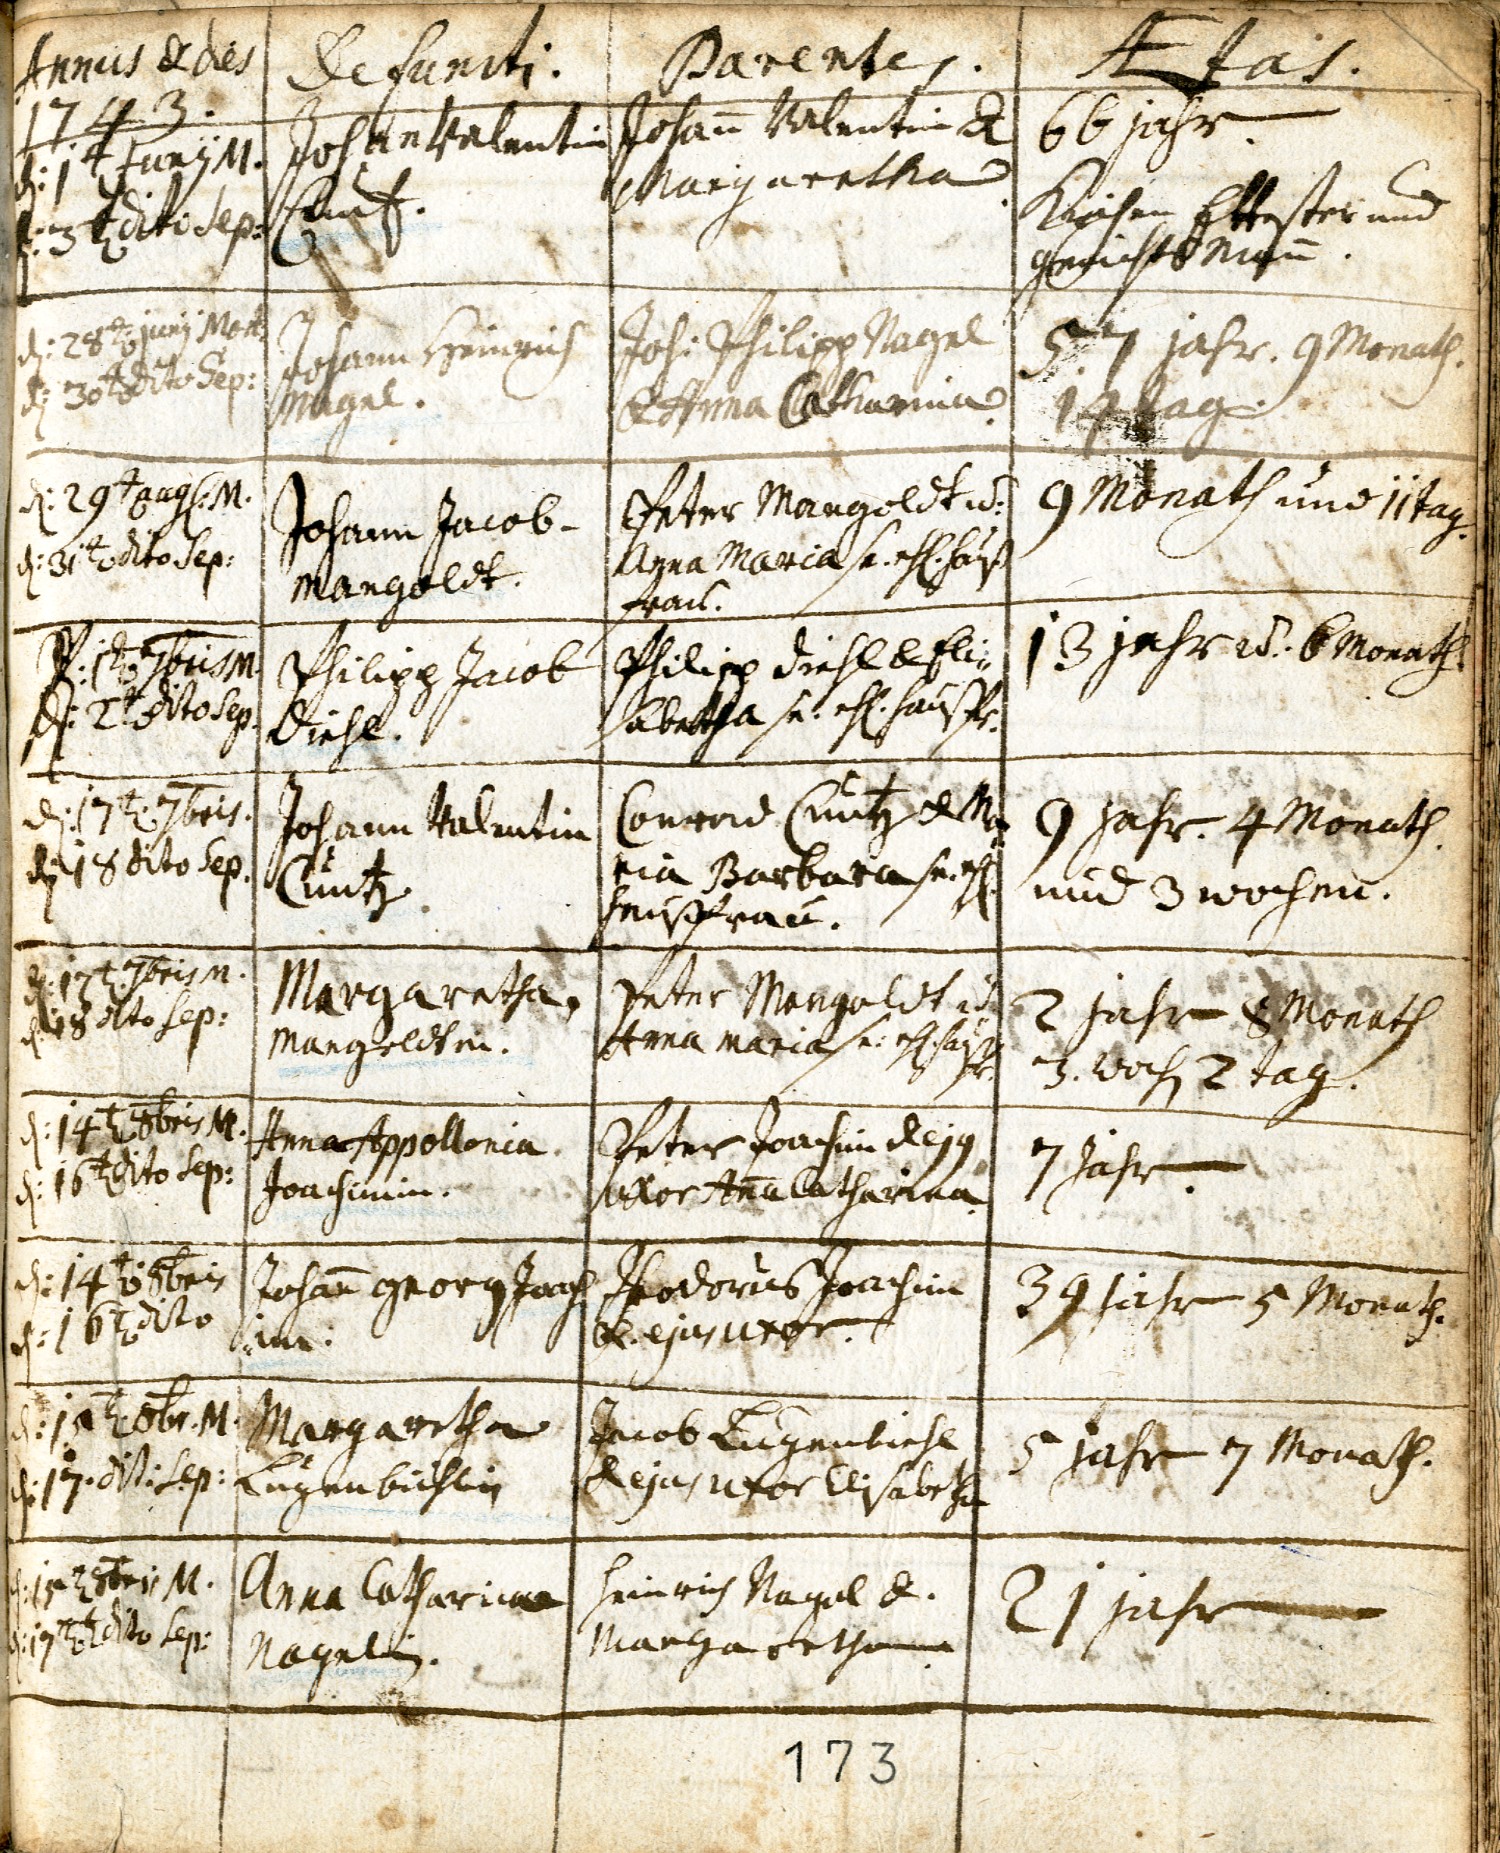 Annus & dies
Defuncti.
Parentes.
Ætas.
1743.
d: 1t Junij M.
d: 3t dito Sep:
Johan Valentin
Johañ Valentin &
Margaretha
66 jahr.
Kirchen Eltester und
gerichts Mañ.
d: 28t junij Mort:
d: 30t dito Sep:
Johann Heinrich
Nagel.
Joh: Philipp Nagel
& Anna Catharina
57 jahr. 9 Monath.
14 Tag.
d: 29t augs: M.
d: 31t dito Sep:
Johann Jacob
Mangoldt.
Peter Mangoldt u:
Anna Maria s. ehl. hauß
frau.
9 Monath und 11 tag.
d: 1t 7bris M.
d: 2t dito Sep.
Philipp Jacob
Diehl.
Philipp Diehl & Eli-
sabetha s: ehl. haußfr.
13 jahr u. 6 Monath.
d: 17t. 7bris.
d: 18 dito Sep.
Johann Valentin
Cuntz.
Conrad Cuntz & Ma-
ria Barbara s. ehl.
haußfrau.
9 Jahr. 4 Monath.
und 3 wochen.
d: 17t. 7bris M.
d: 18 dito Sep:
Margaretha,
Mangoldtin.
Peter Mangoldt u.
Anna maria s: ehl. haußfr.
2 Jahr 8 Monath
3. woch 2 tag.
d: 14t 8bris M.
d: 16t dito Sep:
Anna Appollonia
Joachimin.
Peter Joachim & ejus
uxor Aña Catharina.
7 Jahr
d: 14t 8bris
d: 16t dito
Johañ georg Joach
im.
Theodorus Joachim
& ejus uxor.
39 jahr 5 Monath.
d: 15t. 8br. M.
d: 17. dit: Sep:
Margaretha
Lugenbiehlin
Jacob Lugenbiehl
& ejus uxor Elisabetha
5 jahr 7 Monath.
d: 15t 8bris M.
d: 17t dito Sep:
Anna Catharina
Nagelin.
Heinrich Nagel &.
Margaretha
21 jahr
173